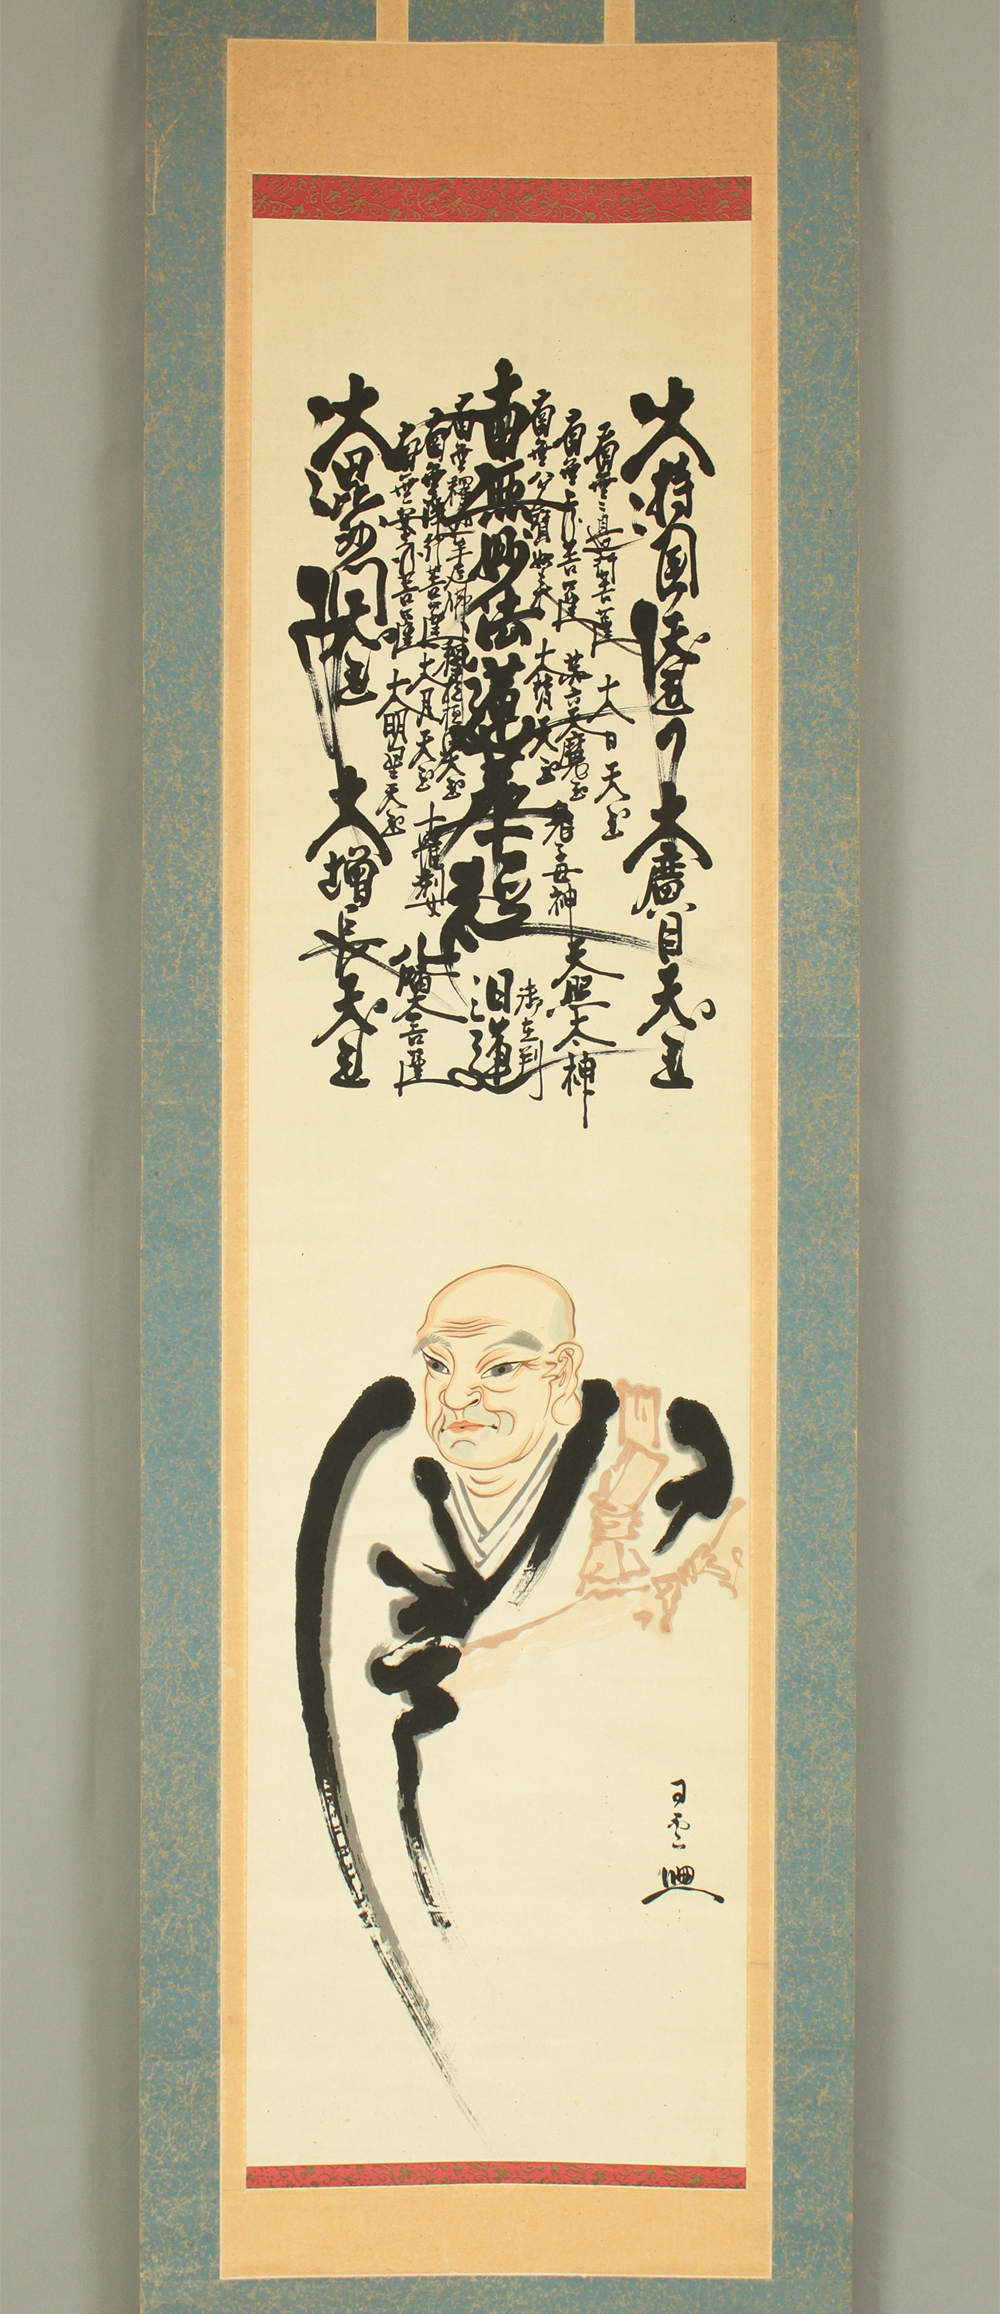 大持国天王 大廣目天王
南無〻邊行菩薩 大日天王
南無上行菩薩 第六天魔王
南無多寶如来 大梵天王
鬼子母神
天照太神
南無妙法蓮華経
日蓮
御在判
南無釋迦牟尼佛 釋提桓因天王
南無浄行菩薩 大月天王 十羅刹女
南無安立行菩薩 大明星天王
八幡大菩薩
大毘沙門天王 大増長天王